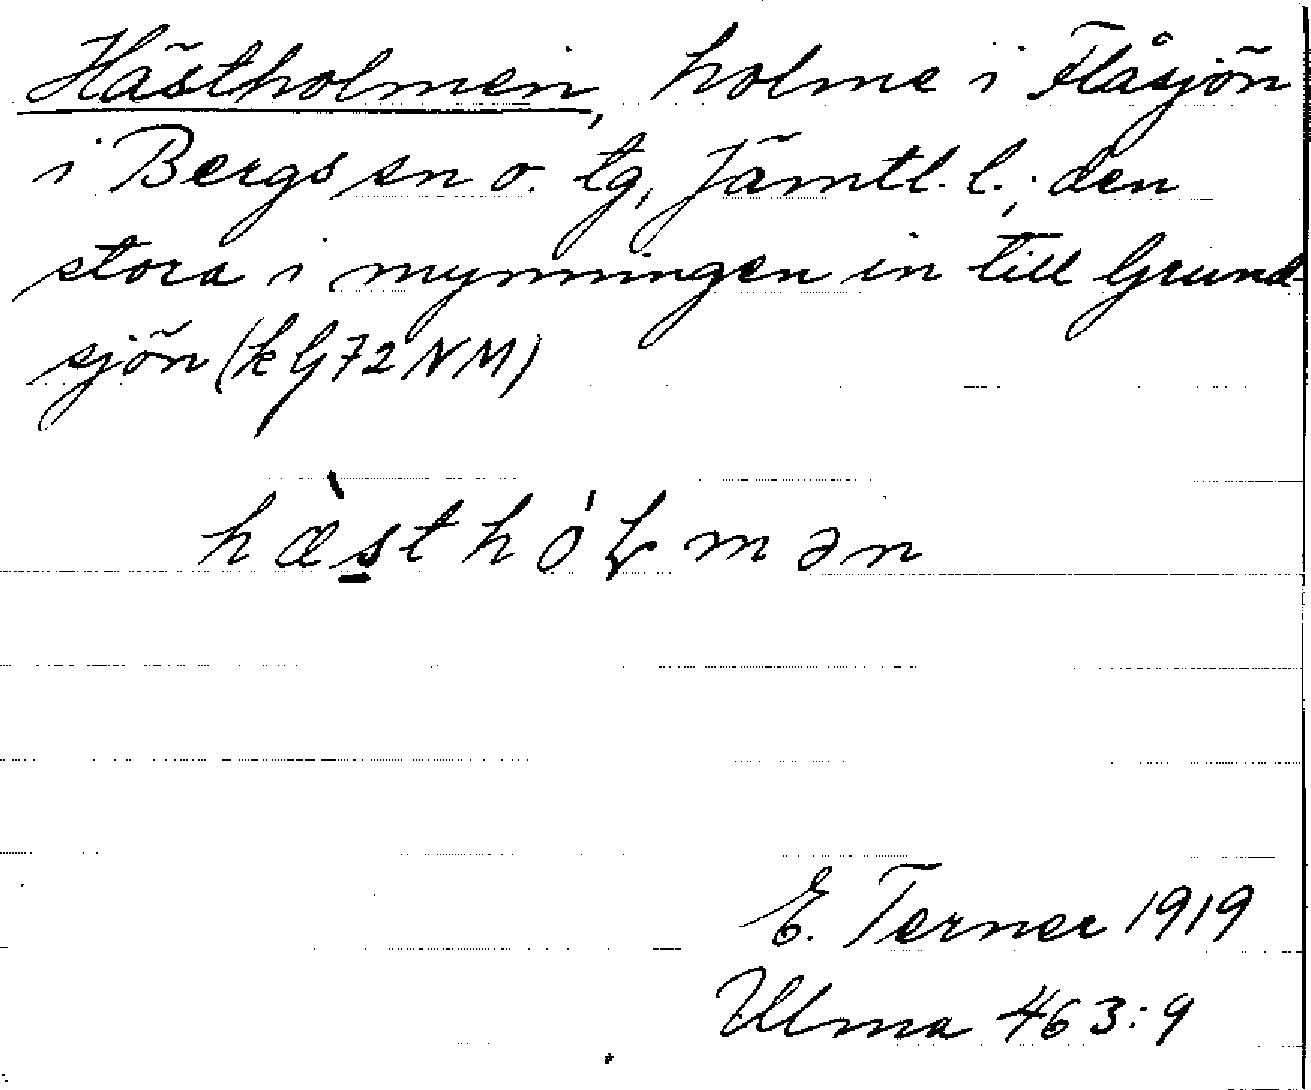 Hästholmen, holme i Flåsjön
i Bergs sn o. tg, Jämtl. l.; den
stora i mynningen in till Grund-
sjön (k G72NM)
hæ̀sthól̥mən
E. Terner 1919
Ulma 463:9